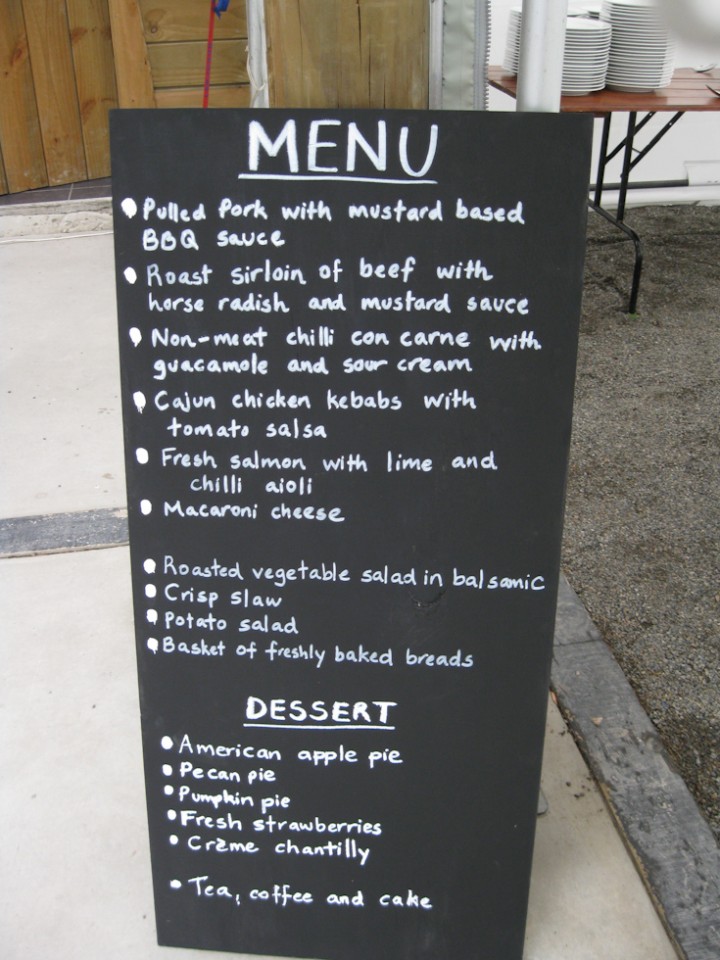 MENU
• Pulled Pork with mustard based
BBQ sauce
• Roast sirloin of beef with
horse radish and mustard sauce
• Non-meat chilli con carne with
guacamole and sour cream
• Cajun chicken kebabs with
tomato salsa
• Fresh salmon with lime and
chilli aioli
• Macaroni cheese
• Roasted vegetable salad in balsamic
• Crisp slaw
• Potato salad
• Basket of freshly baked breads
DESSERT
• American apple pie
• Pecan pie
• Pumpkin pie
• Fresh strawberries
• Crème chantilly
• Tea, coffee and cake